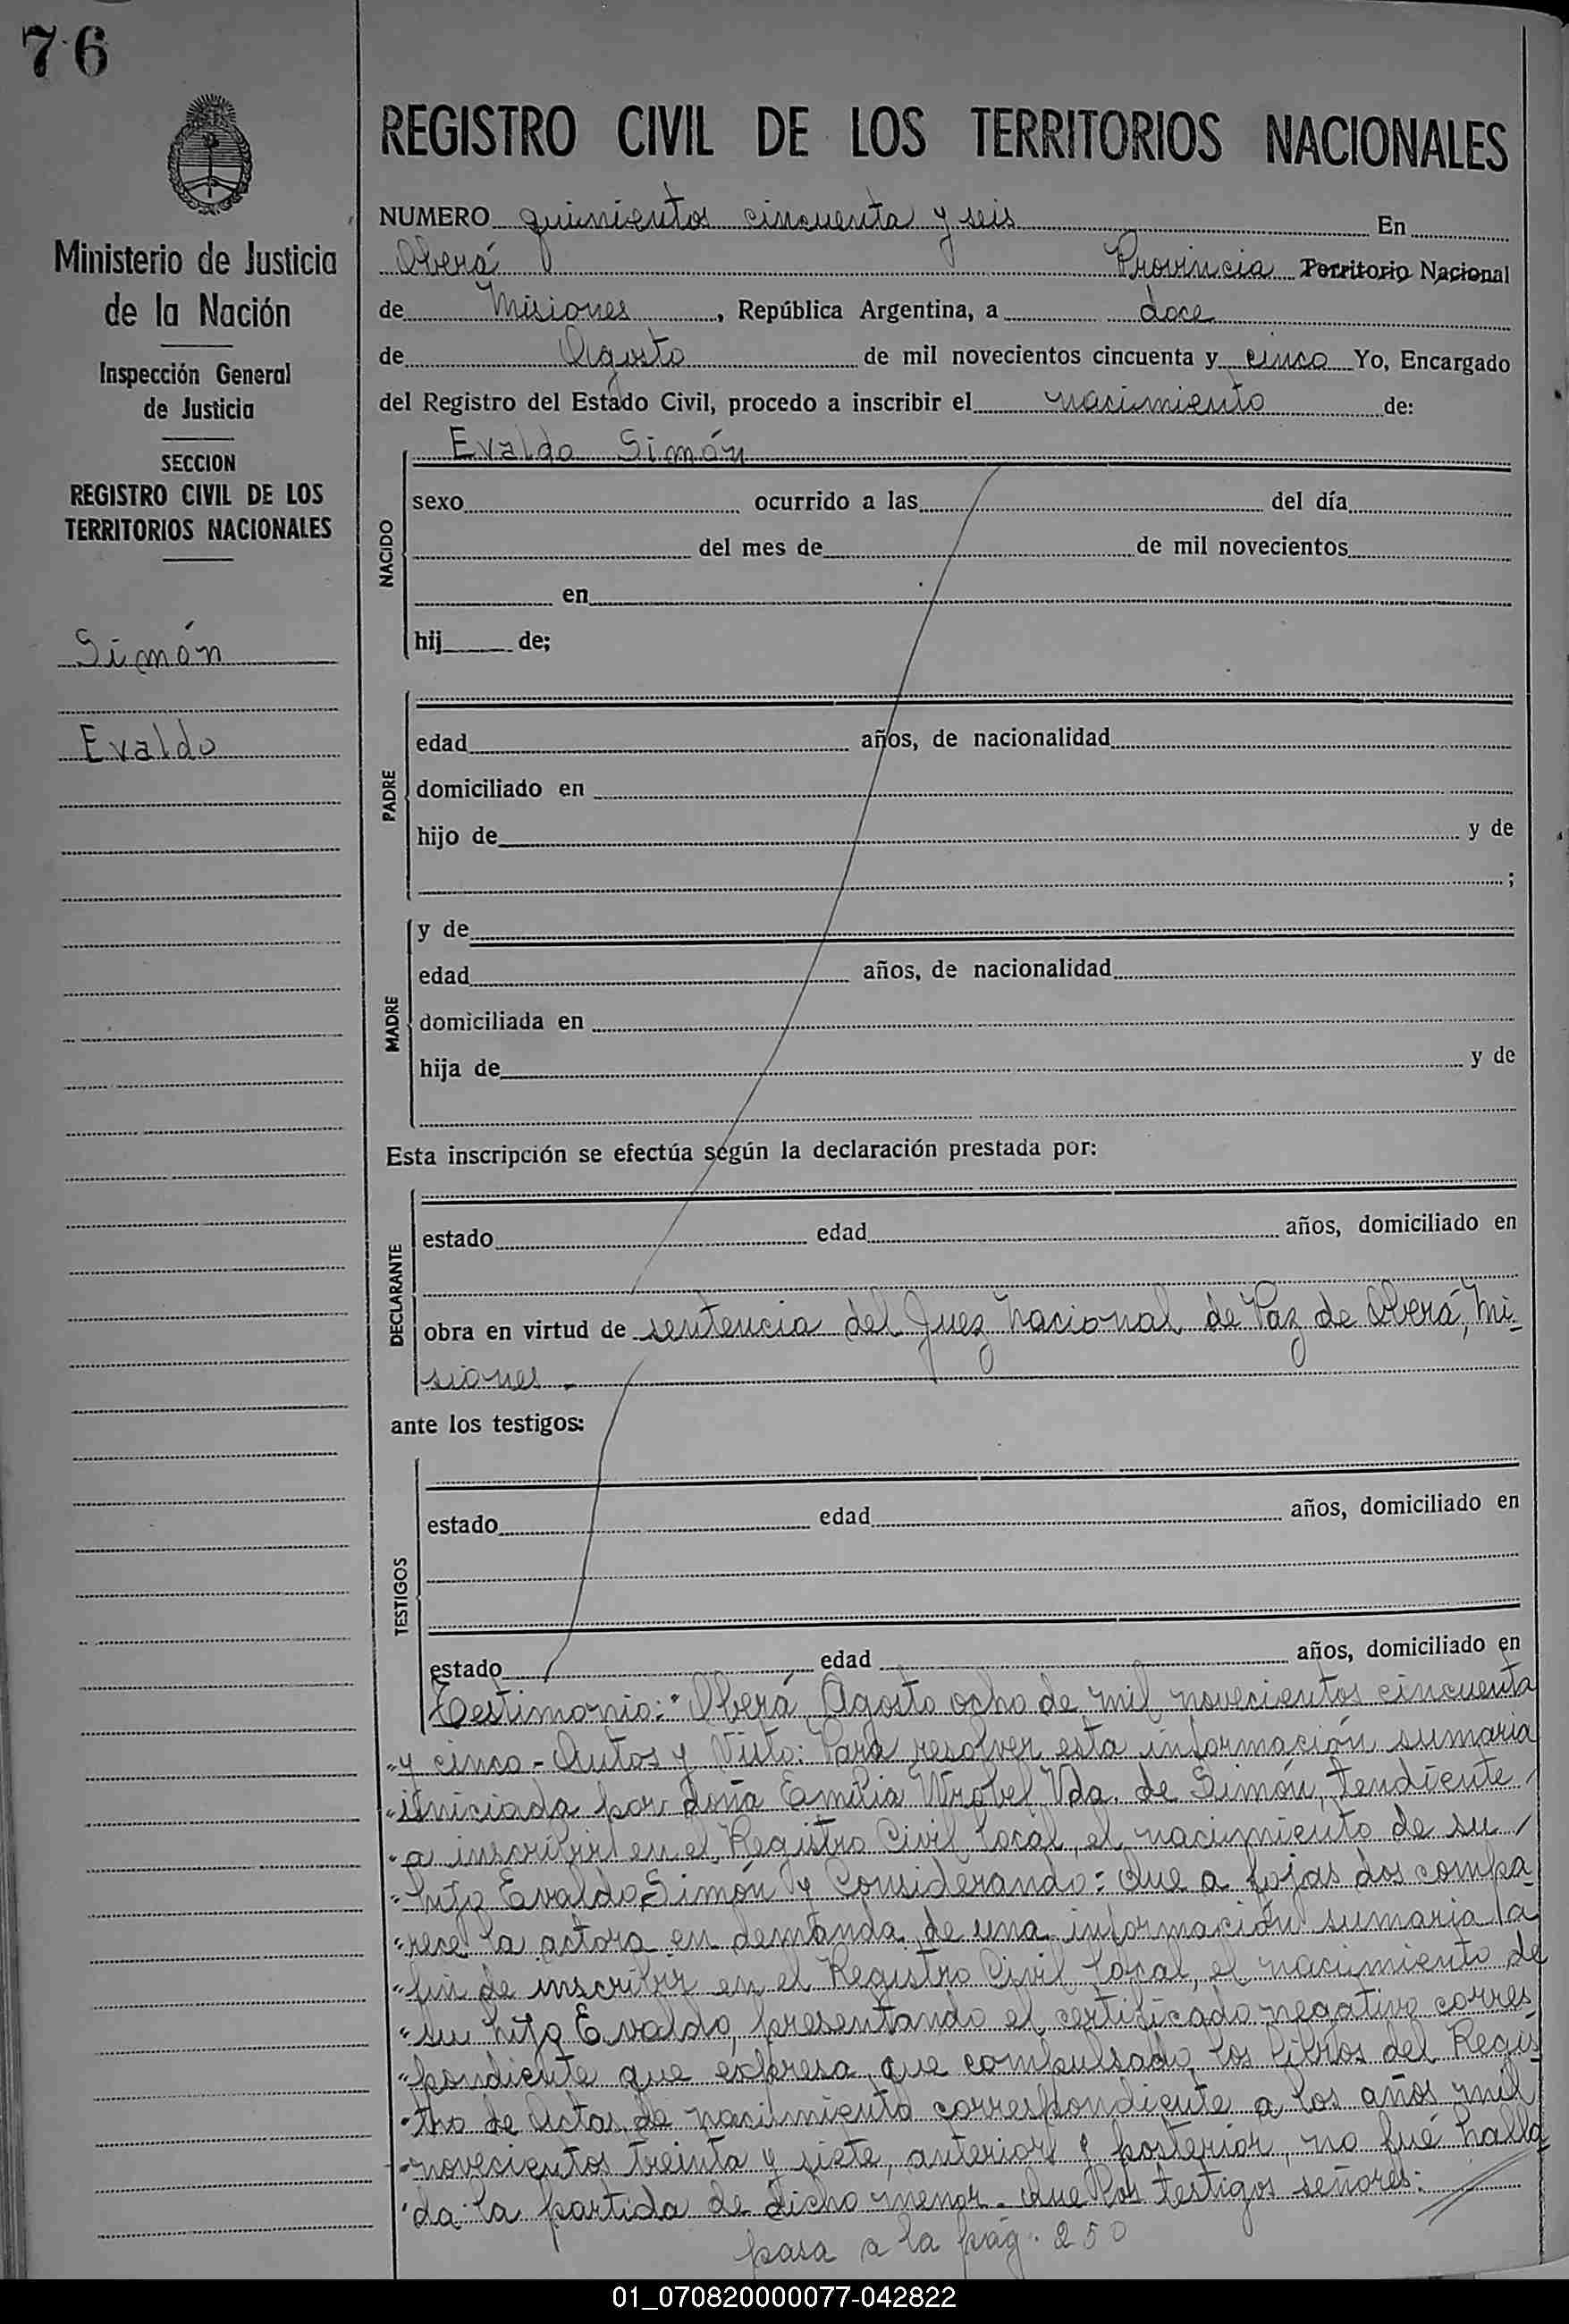 76
Ministerio de Justicia
de la Nación
Inspección General
de Justicia
SECCION
REGISTRO CIVIL DE LOS
TERRITORIOS NACIONALES
Simón
Evaldo
REGISTRO CIVIL DE LOS TERRITORIOS NACIONALES
NUMERO quinientos cincuenta y seis En
Oberá Provincia Territorio Nacional
de Misiones, República Argentina, a doce
de Agosto de mil novecientos cincuenta y cinco Yo, Encargado
del Registro del Estado Civil, procedo a inscribir el nacimiento de:
Evaldo Simón
NACIDO
sexo ocurrido a las del día
del mes de de mil novecientos
en
hij de;
PADRE
edad años, de nacionalidad
domiciliado en
hijo de y de
;
MADRE
y de
edad años, de nacionalidad
domiciliada en
hija de y de
Esta inscripción se efectúa según la declaración prestada por:
DECLARANTE
estado edad años, domiciliado en
obra en virtud de sentencia del Juez Nacional de Paz de Oberá, Mi-
siones.-
ante los testigos:
TESTIGOS
estado edad años, domiciliado en
estado edad años, domiciliado en
Testimonio: "Oberá Agosto ocho de mil novecientos cincuenta
"y cinco - Autos y Visto: Para resolver esta información sumaria
"iniciada por doña Emilia Wrobel Vda. de Simón, tendiente
"a inscribir en el Registro Civil local, el nacimiento de su
"hijo Evaldo Simón y Considerando: Que a fojas dos compa-
"rece la actora en demanda de una información sumaria a
"fin de inscribir en el Registro Civil local, el nacimiento de
"su hijo Evaldo, presentando el certificado negativo corres-
"pondiente que expresa que compulsado los libros del Regis-
"tro de Actas de nacimiento correspondiente a los años mil
"novecientos treinta y siete, anterior y posterior, no fué halla-
"da la partida de dicho menor. Que los testigos señores:
pasa a la pág. 250
01_070820000077-042822